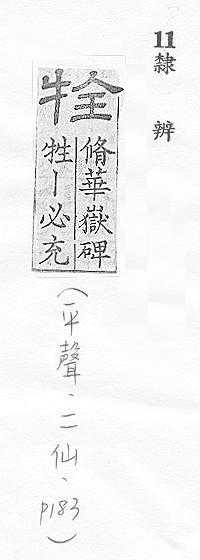 11隸辨
牷
脩華嶽碑
牲丨必充
(平聲.二仙.p183)